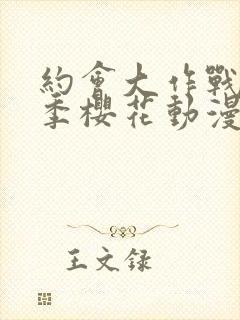 約會大作戰
季櫻花動漫
王文録